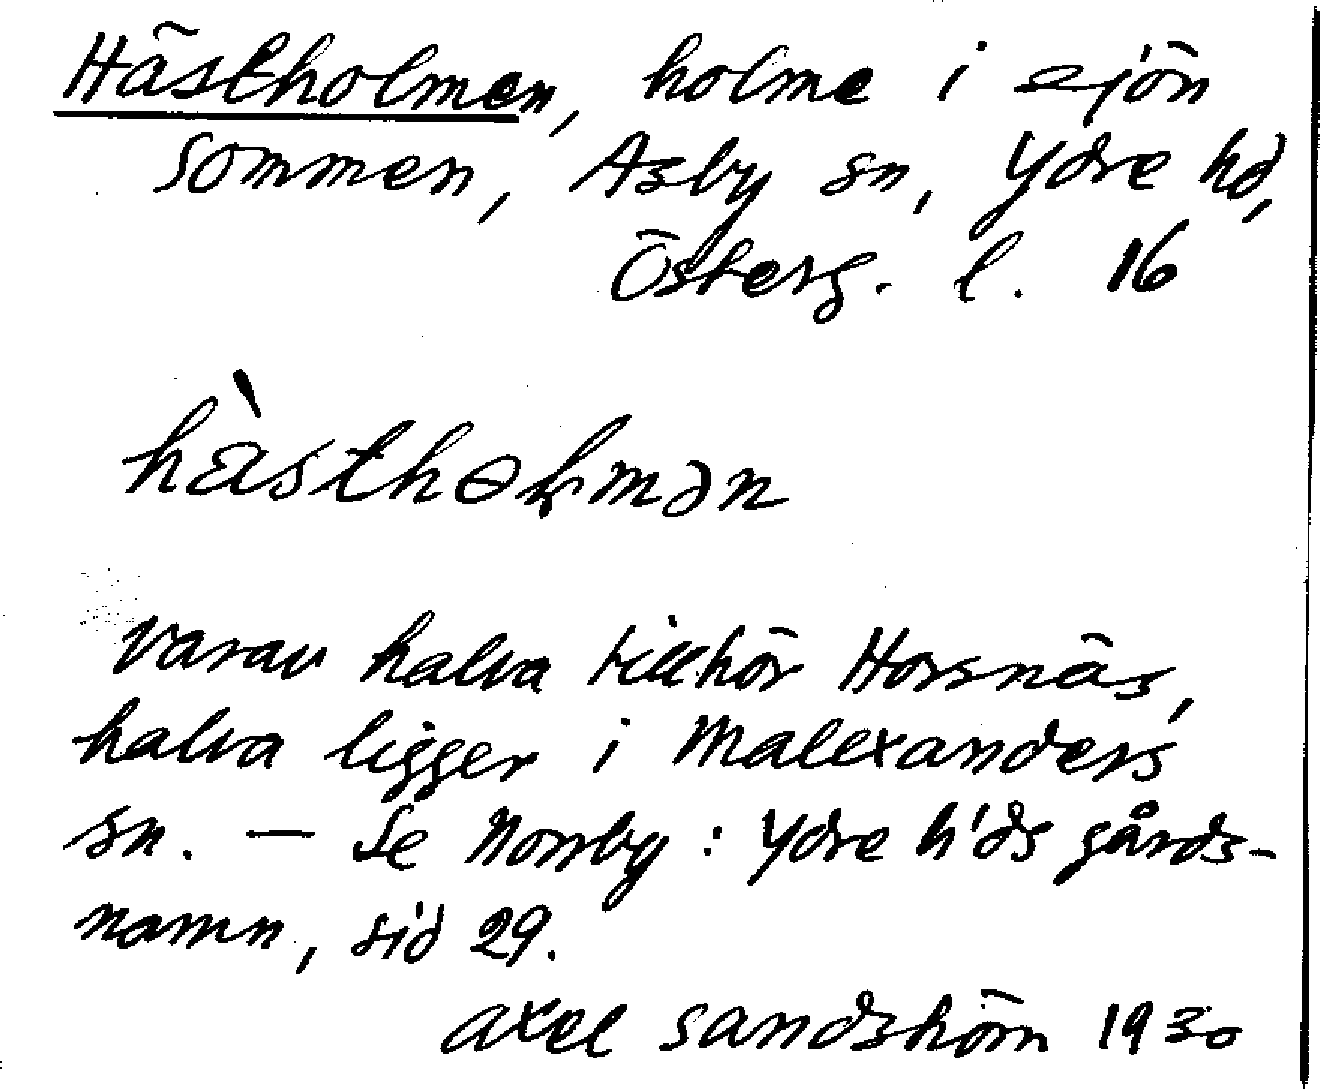 Hästholmen, holme i sjön
Sommen, Asby sn, Ydre hd,
Österg. l. 16
hàsthoḷmən
varav halva tillhör Horsnäs,
halva ligger i Malexanders
sn. — Se Norrby: Ydre h'ds gårds-
namn, sid 29.
Axel Sandshörn 1930